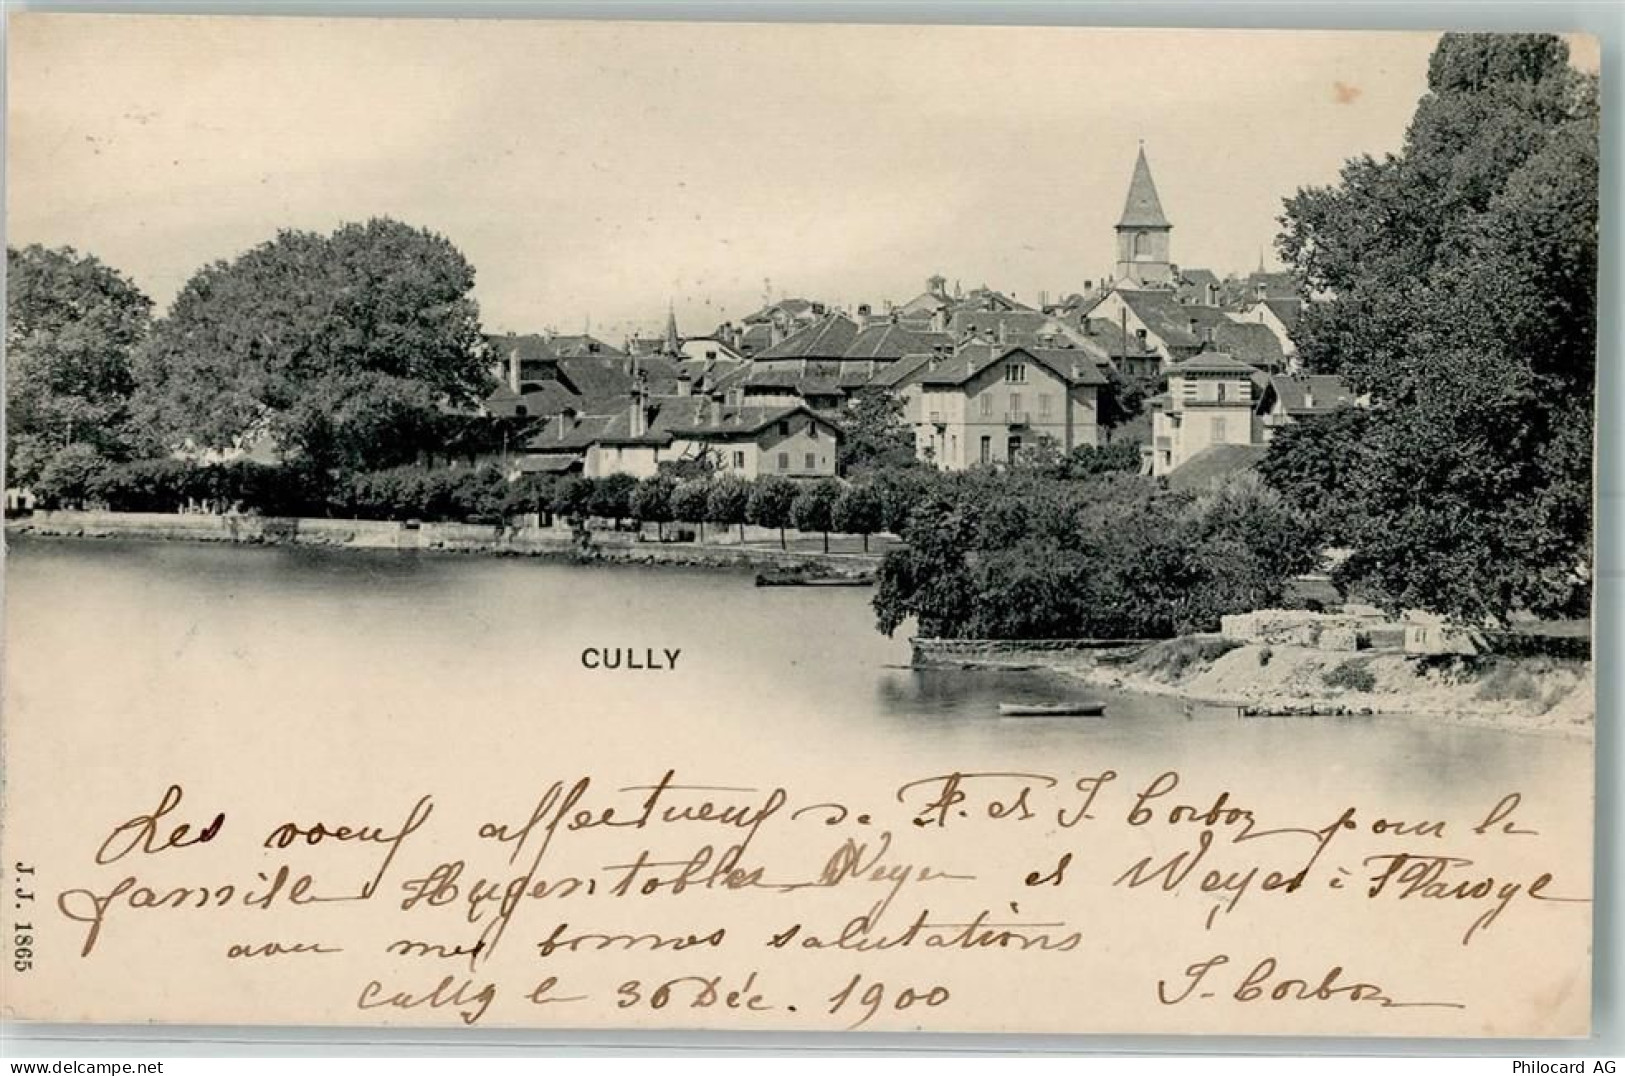 CULLY
Les vœux affectueux de A. et J. Corboz pour la
famille Hugentobler Weyer et Weyer à
avec mes bonnes salutations
Cully le 30 Déc. 1900 J. Corboz
J.J. 1865
Philocard AG